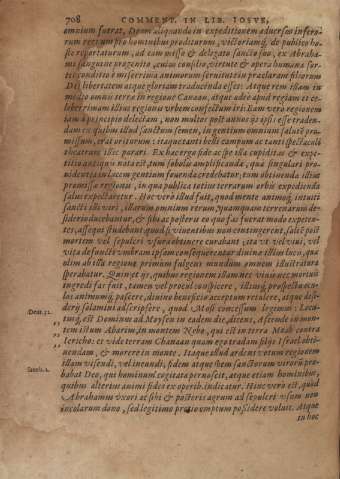 708 COMMENT. IN LIB. IOSVE,
omnium futrat, Deum aliquando in expeditionem aduersus infero-
rum rectum pro hominibus proditurum, victoriamq́; de publico ho-
ste reportaturum, ad eam misso & delegato sancto suo, ex Abraha-
mi sanguine progenito, cuius consilio, virtute & opera humana for-
tis conditio è miserrima animorum seruitute in praeclaram filiorum
Dei libertatem atque gloriam traducenda esset: Atque rem illam in
medio omnis terrae in regione Canaan, atque adeo apud regiam et ce-
leberrimam illius regionis vrbem conficiendam
iam à principio delectam, non multos post annos ijs ipsis esse traden-
dam ex quibus illud sanctum semen, in gentium omnium salutē pro-
missum, erat oriturum: itaque tanti belli campum ac tanti spectaculi
theatrum illic parari. Ex hac ergo fide ac spe illa cupiditas & expe-
titio antiquis nata est, tum sobolis amplificandae, quae singulari pro-
uidentia in
promissae regionis, in qua publica totius terrarum orbis expedienda
salus expectaretur. Hoc vero illud fuit, quod mente animoq́; intuiti
sancti illi viri, illarum omnium rerum, quamquam terrenarum de-
siderio ducebantur, & sibi ac posteris eo quo fas fuerat modo expeten-
tes, assequi studebant: quod si viuentibus non contingerent, saltē post
mortem vel sepulcri vsura obtinere curabant: ita vt vel viui, vel
vita defuncti vmbram ipsam consequerentur diuinae illius lucis, quae
olim ab illa regione primùm fulgens mundum omnem illustratura
sperabatur. Quin et ijs, quibus regionem illam nec viuis nec mortuis
ingredi fas fuit, tamen vel procul conspicere, illiusq́; prospectu ocu-
los animumq́; pascere, diuino beneficio acceptum retulere, atque desi-
derij solamini adscripsere, quod Mosi concessum legimus: Locu-
tusq́; est Dominus ad Moysen in eadem die, dicens, Ascende in mon-
tem istum Abarim, in montem Nebo, qui est in terra Moab contra
Iericho: et vide terram Chanaan quam ego tradam filijs Israel obti-
nendam, & morere in monte. Itaque illud ardens votum regionem
illam visendi, vel ineundi, fidem atque spem sanctorum virorū pro-
babat Deo, qui hominum cogitata pernoscit, atque etiam hominibus,
quibus alterius animi fides ex operib. indicatur. Hinc vero est, quòd
Abrahamus vxori ac sibi & posteris agrum ad sepulcri vsum non
incolarum dono, sed legitimo pretio emptum possidere voluit. Atque
in hoc
Deut. 32.
„
„
„
Iacob. 2.